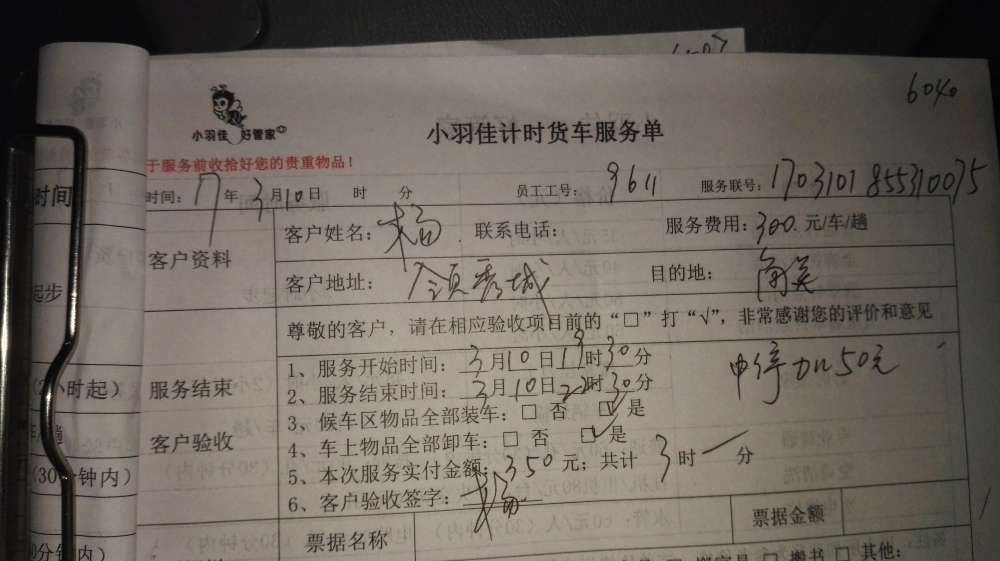 6040
小羽佳 好管家
小羽佳计时货车服务单
于服务前收拾好您的贵重物品！
时间：17年3月10日 时 分 员工工号：9611 服务联号：1703101855310075
客户资料
客户姓名：杨 联系电话： 服务费用：300.元/车/趟
客户地址：领秀城 目的地：
尊敬的客户，请在相应验收项目前的“□”打“√”，非常感谢您的评价和意见
服务结束
客户验收
1、服务开始时间：3月10日19时30分
2、服务结束时间：3月10日22时30分
中停加50元
3、候车区物品全部装车：□ 否 ☑ 是
4、车上物品全部卸车：□ 否 ☑ 是
5、本次服务实付金额：350元；共计 3时一分
6、客户验收签字：杨
票据名称 票据金额
□ 搬书 □ 其他：
时间
起步
(2小时起)
(30分钟内)
0分钟内)